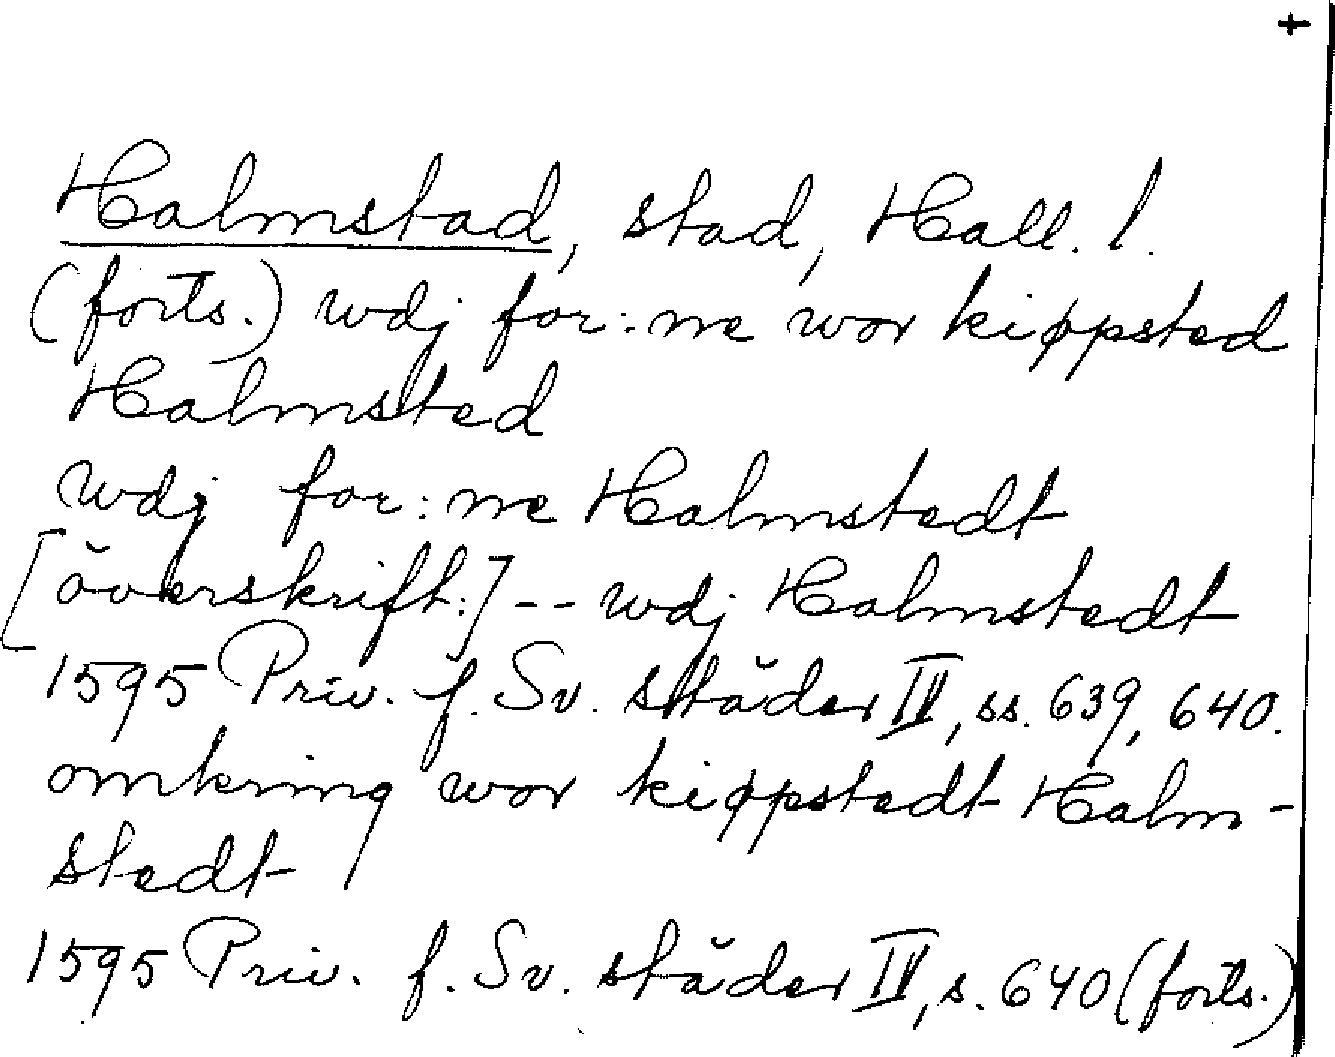 +
Halmstad, stad, Hall. l.
(forts.) wdj for:ne wor kiøpsted
Halmsted
wdj for:ne Halmstedt
[överskrift:] -- wdj Halmstedt
1595 Priv. f. Sv. städer IV, ss. 639, 640.
omkring wor kiøpstedt Halm-
stedt
1595 Priv. f. Sv. städer IV, s. 640 (forts.)